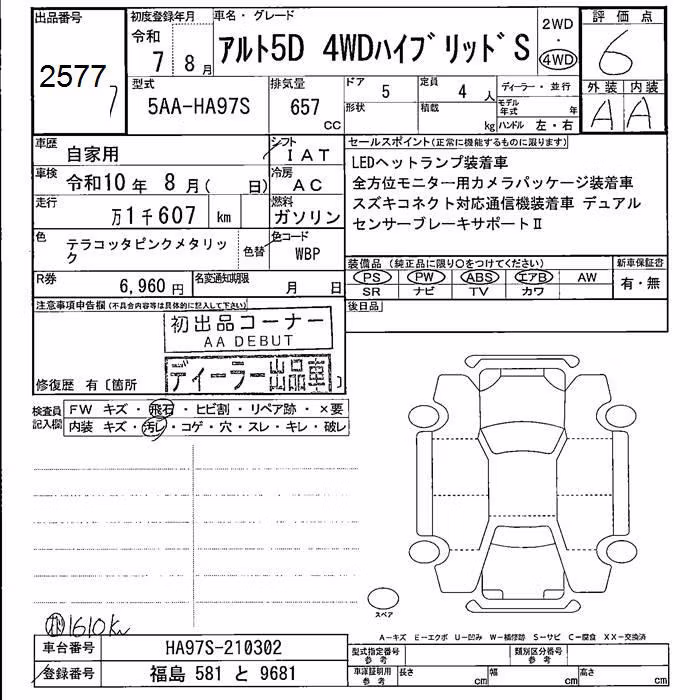 出品番号
2577
7
初度登録年月
令和
7年 8月
車名・グレード
アルト5D 4WDハイブリッドS
2WD
・
4WD
評価点
6
型式
5AA-HA97S
排気量
657
cc
ドア 5
形状
定員 4 人
積載 kg
ディーラー・並行
モデル年式 年
ハンドル 左・右
外装 内装
A A
車歴 自家用
シフト IAT
車検 令和10年 8月( 日)
冷房 AC
走行 万1千607 km
燃料 ガソリン
色 テラコッタピンクメタリック
色替
色コード WBP
R券 6,960円
名変通知期限 月 日
セールスポイント(正常に機能するものに限ります)
LEDヘットランプ装着車
全方位モニター用カメラパッケージ装着車
スズキコネクト対応通信機装着車 デュアル
センサーブレーキサポートⅡ
装備品(純正品に限り○をつけてください)
PS PW ABS エアB AW
SR ナビ TV カワ
新車保証書
有・無
後日品
注意事項申告欄(不具合内容等は具体的に記入して下さい)
初出品コーナー
AA DEBUT
ディーラー出品車
修復歴 有〔箇所 〕
検査員記入欄
FW キズ・飛石・ヒビ割・リペア跡・×要
内装 キズ・汚レ・コゲ・穴・スレ・キレ・破レ
スペア
1610km
A-キズ E-エクボ U-凹み W-補修跡 S-サビ C-腐食 XX-交換済
車台番号 HA97S-210302
登録番号 福島 581 と 9681
型式指定番号 参考
類別区分番号 参考
車庫証明用 参考
長さ cm
幅 cm
高さ cm